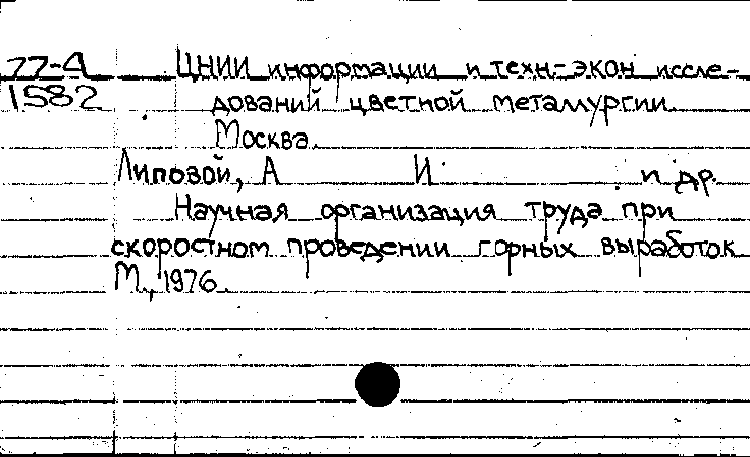 77-4 ЦНИИ информации и техн.-экон иссле-
1582 дований цветной металлургии.
Москва.
Липовой, А И и др.
Научная организация труда при
скоростном проведении горных выработок
М., 1976.